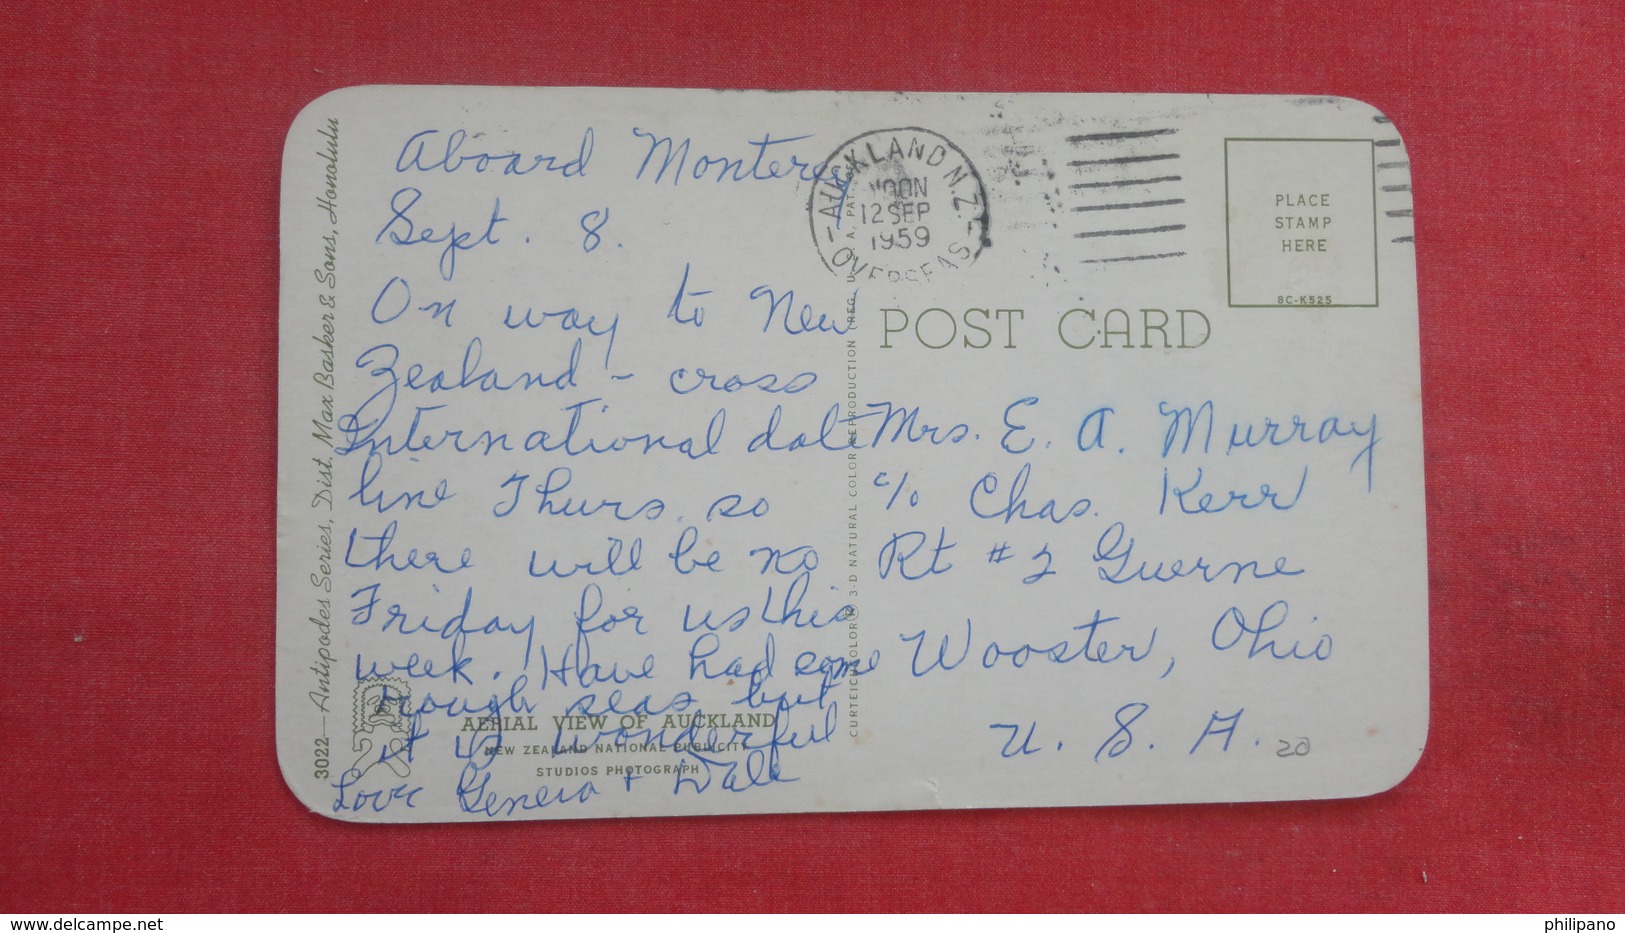 Aboard Monterey
Sept. 8.
On way to New
Zealand - cross
International date
line Thurs. so
there will be no
Friday for us this
week. Have had some
rough seas but
it is wonderful
Love Geneva + Dale
AUCKLAND N.Z.
NOON
12 SEP
1959
OVERSEAS
PLACE
STAMP
HERE
8C-K525
POST CARD
Mrs. E. A. Murray
c/o Chas. Kerr
Rt #2 Guerne
Wooster, Ohio
U. S. A.
20
3022—Antipodes Series, Dist. Max Basker & Sons, Honolulu
CURTEICHCOLOR® 3-D NATURAL COLOR REPRODUCTION (REG. U. S. A. PAT.
AERIAL VIEW OF AUCKLAND
NEW ZEALAND NATIONAL PUBLICITY
STUDIOS PHOTOGRAPH
www.delcampe.net
philipano